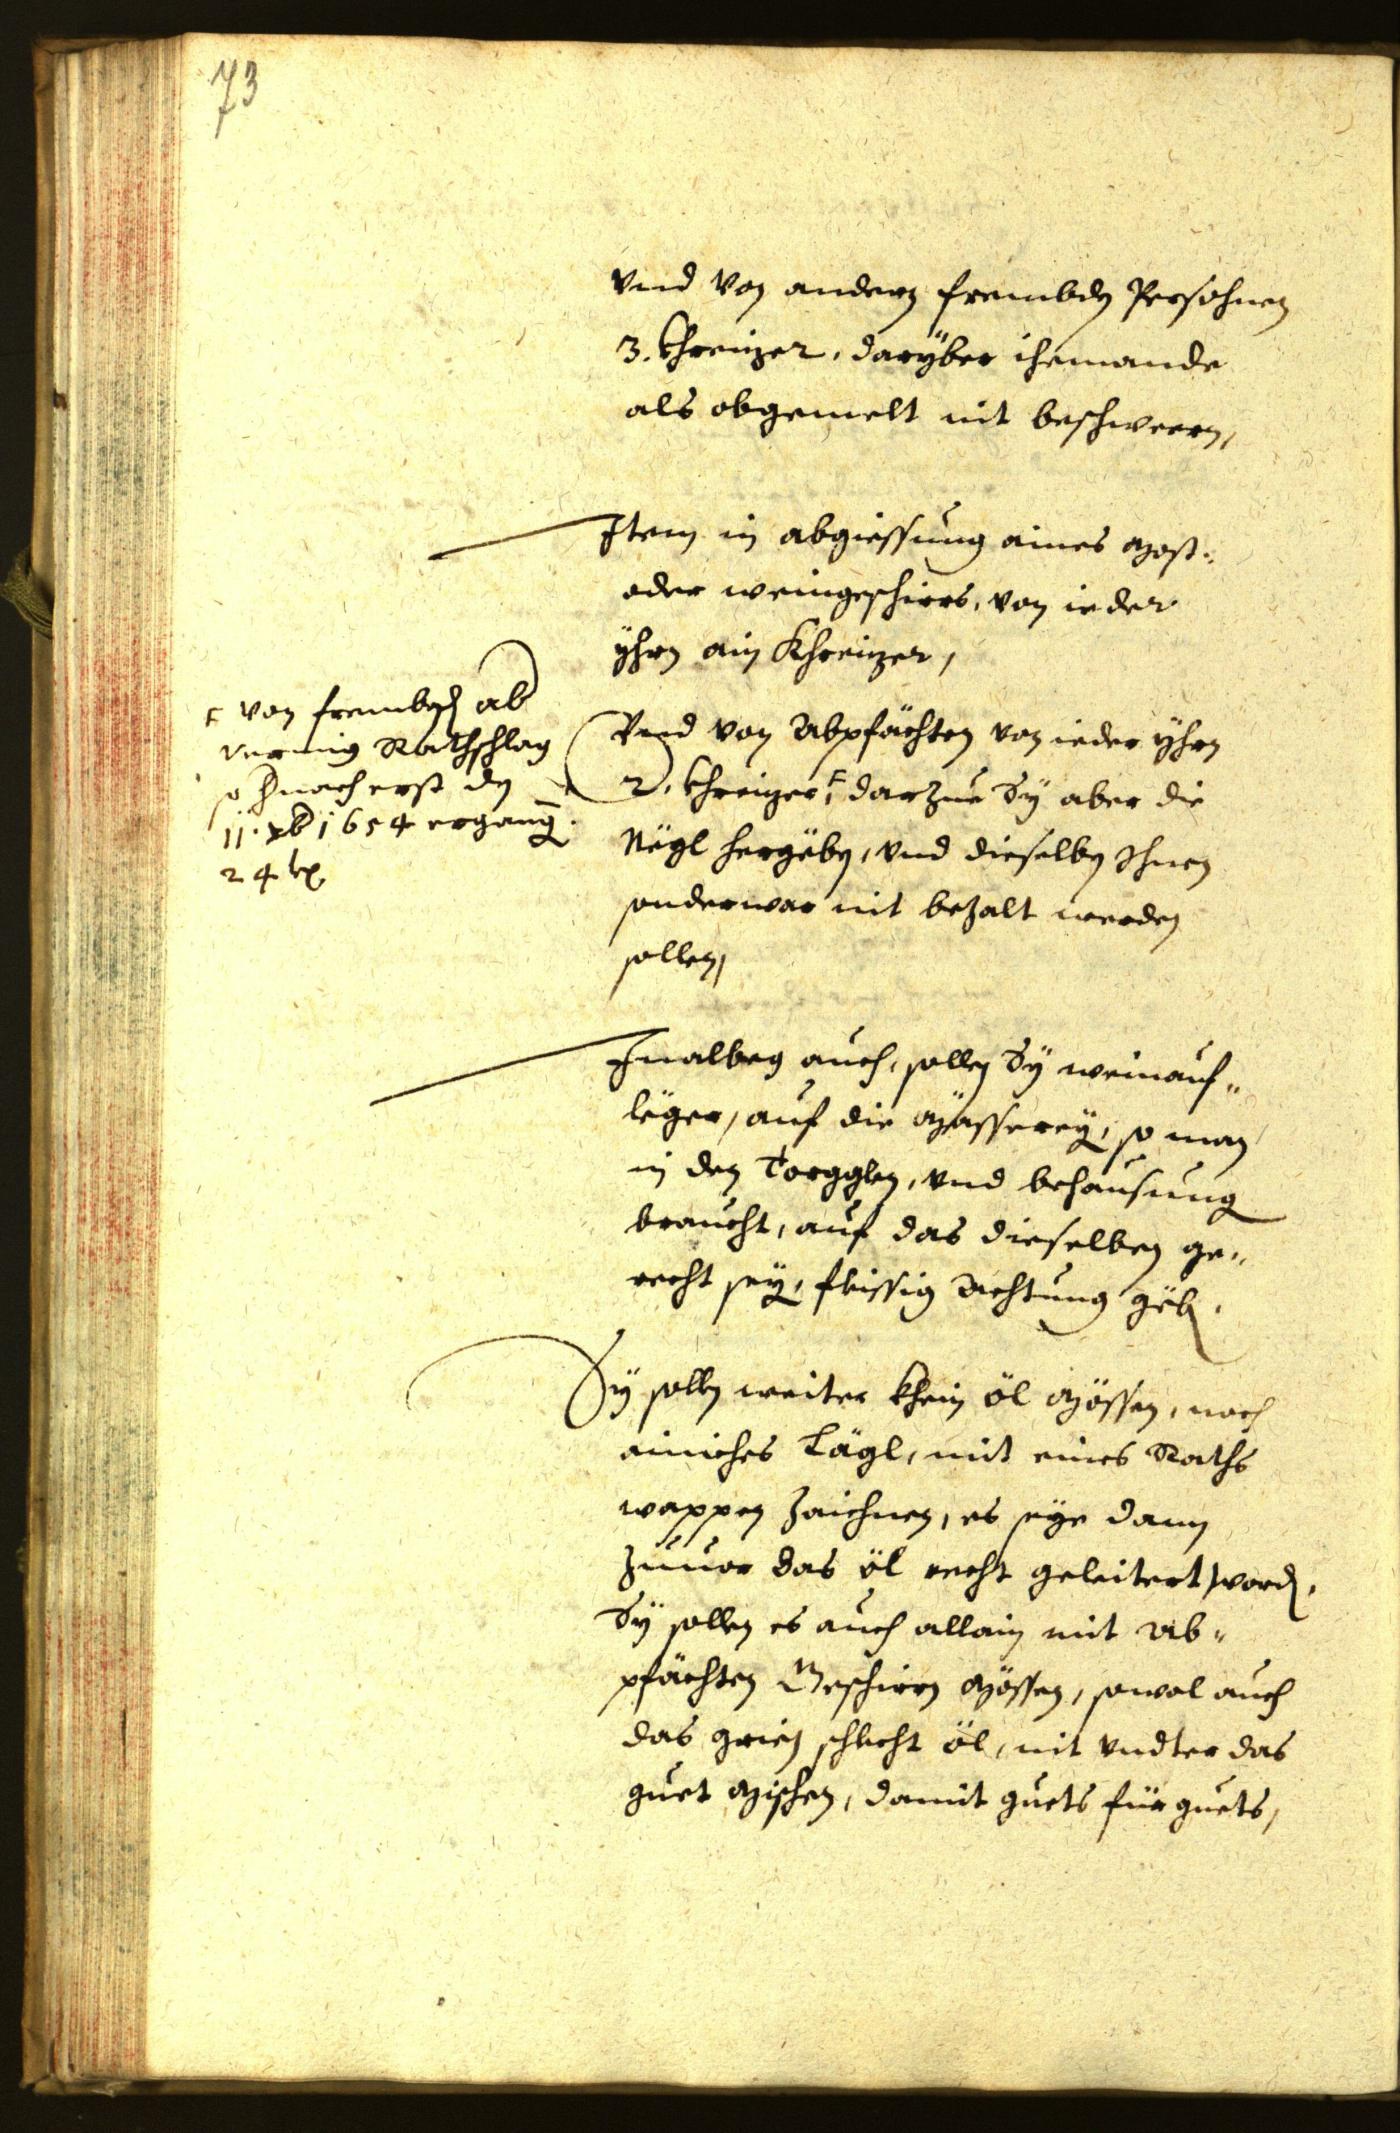 73
vnd von andern frembdn Persohnen
3. khreizer, darÿber ihemande
als obgemelt nit beschwern,
Item in abgiessung aines Most-
oder weingeschirrs, von ieder
ÿhrn ain Khreizer,
Vnd von Abpfächten von ieder ÿhrn
2. khreizer, darzue Sÿ aber die
Nägl hergäbn, vnd dieselbn Ihnen
sonderwar nit bezalt werden
sollen,
F von frembden ab
vermig Rathschlag
so hernach erst den
11. xb 1654 ergangen.
24 kr.
Inalweg auch, sollen Sÿ weinauf-
lëger, auf die Mässereÿ, so man
in den Torgglen, vnd behausung
braucht, auf das dieselben ge-
recht seÿ, fleissig Achtung gäb.
Sÿ solln weiter khein öl Mössen, noch
ainiches Lägl, mit eines Raths
wappen zaichnen, es seye dann
zuuor das öl recht geleitert word.
Sÿ sollen es auch allain mit Ab-
pfächten Geschirrn Mössen, sowol auch
das grien schlecht öl, nit vndter das
guet Mischen, damit guets für guets,